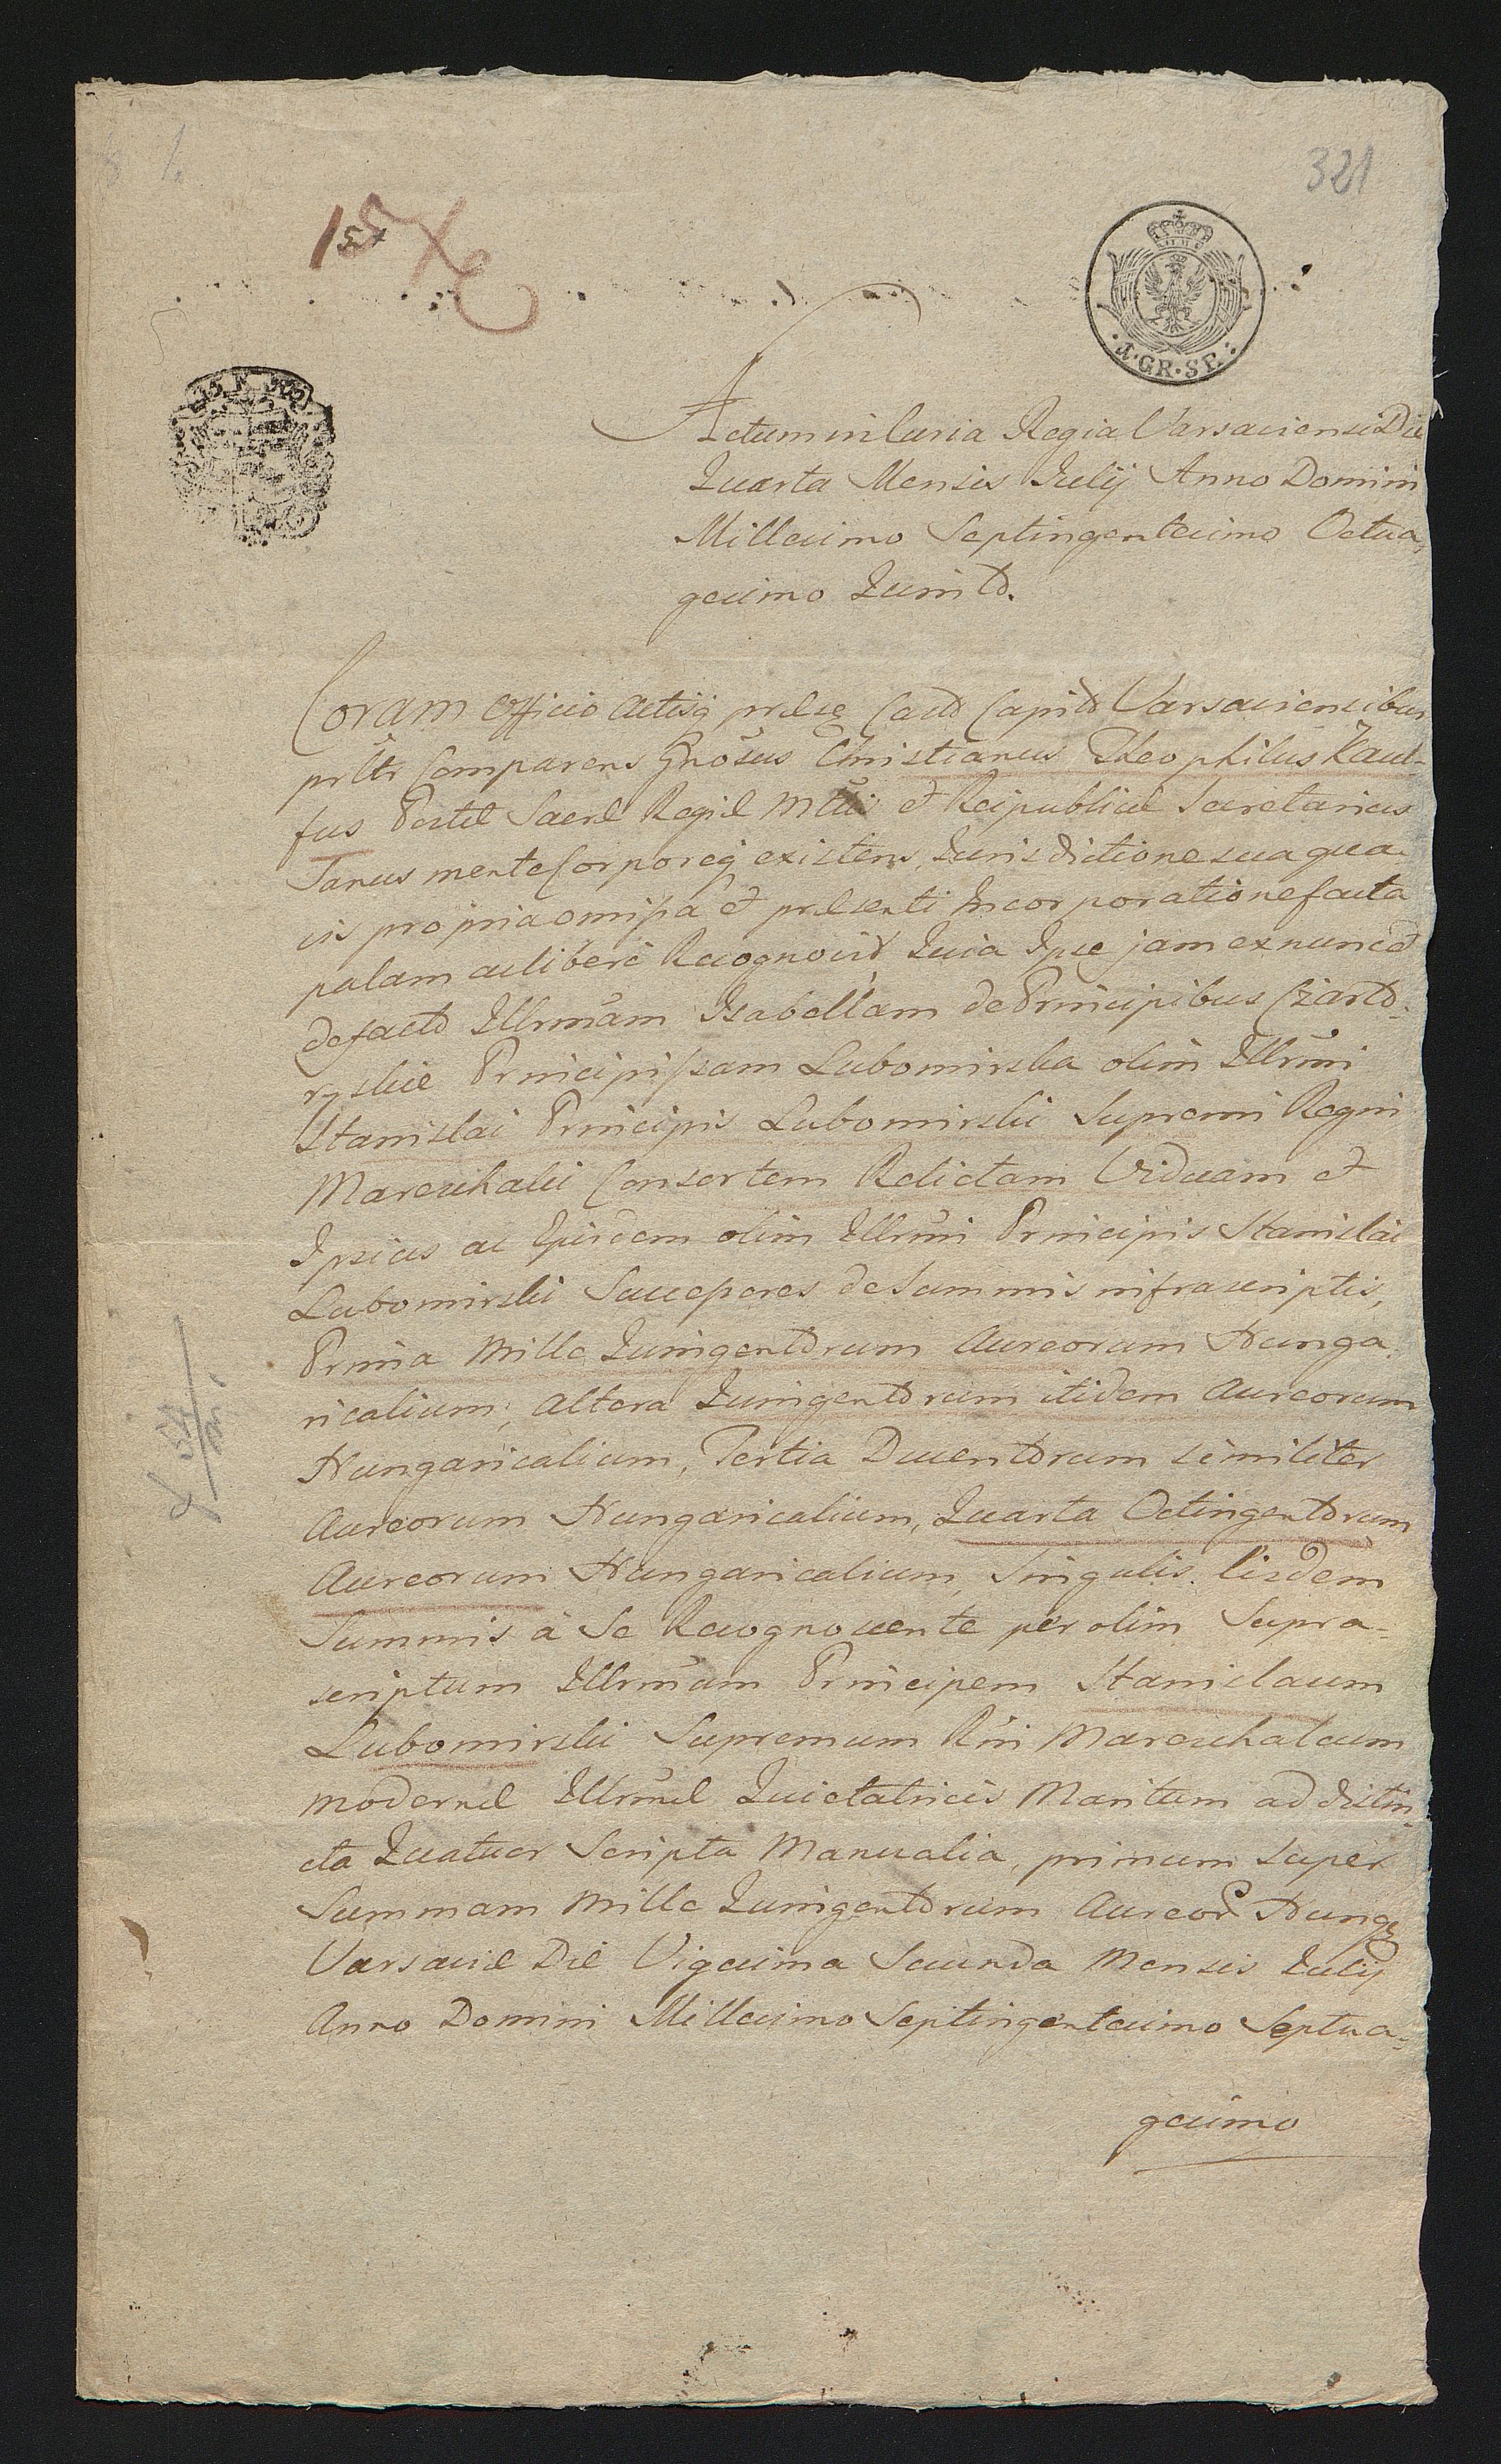 321
4. GR. SR.
Actum in Curia Regia Varsaviensi Die
Quarta Mensis Julij Anno Domini
Millesimo Septingentesimo Octua,
gesimo Quinto.
Coram Officio Actisq præse Castr Capitr Varsaviensibus
prltr Comparens Gnosus Christianus Theophilus Kaul-
fus Postæ Sacræ Regiæ Mttis et Reipublicæ Secretarius
Sanus mente Corporeq existens, Jurisdictione sua qua-
vis propria omissa et præsenti Incorporatione facta
palam ac libere Recognovit Quia Ipse jam ex nunc et
de facto Illrmam Isabellam de Principibus Czarto-
ryskie Principissam Lubomirska olim Illrmi
Stanislai Principis Lubomirski Supremi Regni
Mareschalci Consortem Relictam Viduam et
Ipsius ac Ejusdem olim Illrmi Principis Stanislai
Lubomirski Successores de Summis infrascriptis,
Prima Mille Quingentorum Aureorum Hunga,
ricalium, Altera Quingentorum itidem Aureorum
Hungaricalium, Tertia Ducentorum similiter
Aureorum Hungaricalium, Quarta Octingentorum
Aureorum Hungaricalium, Singulis Eisdem
Summis à Se Recognoscente per olim Supra-
scriptum Illrmum Principem Stanislaum
Lubomirski Supremum Rni Mareschalcum
modernæ Illrmæ Quietatricis Maritum ad distin-
cta Quatuor Scripta Manualia, primum super
Summam Mille Quingentorum Aureor Hung
Varsaviæ Die Vigesima Secunda Mensis Julij
Anno Domini Millesimo Septingentesimo Septua-
gesimo